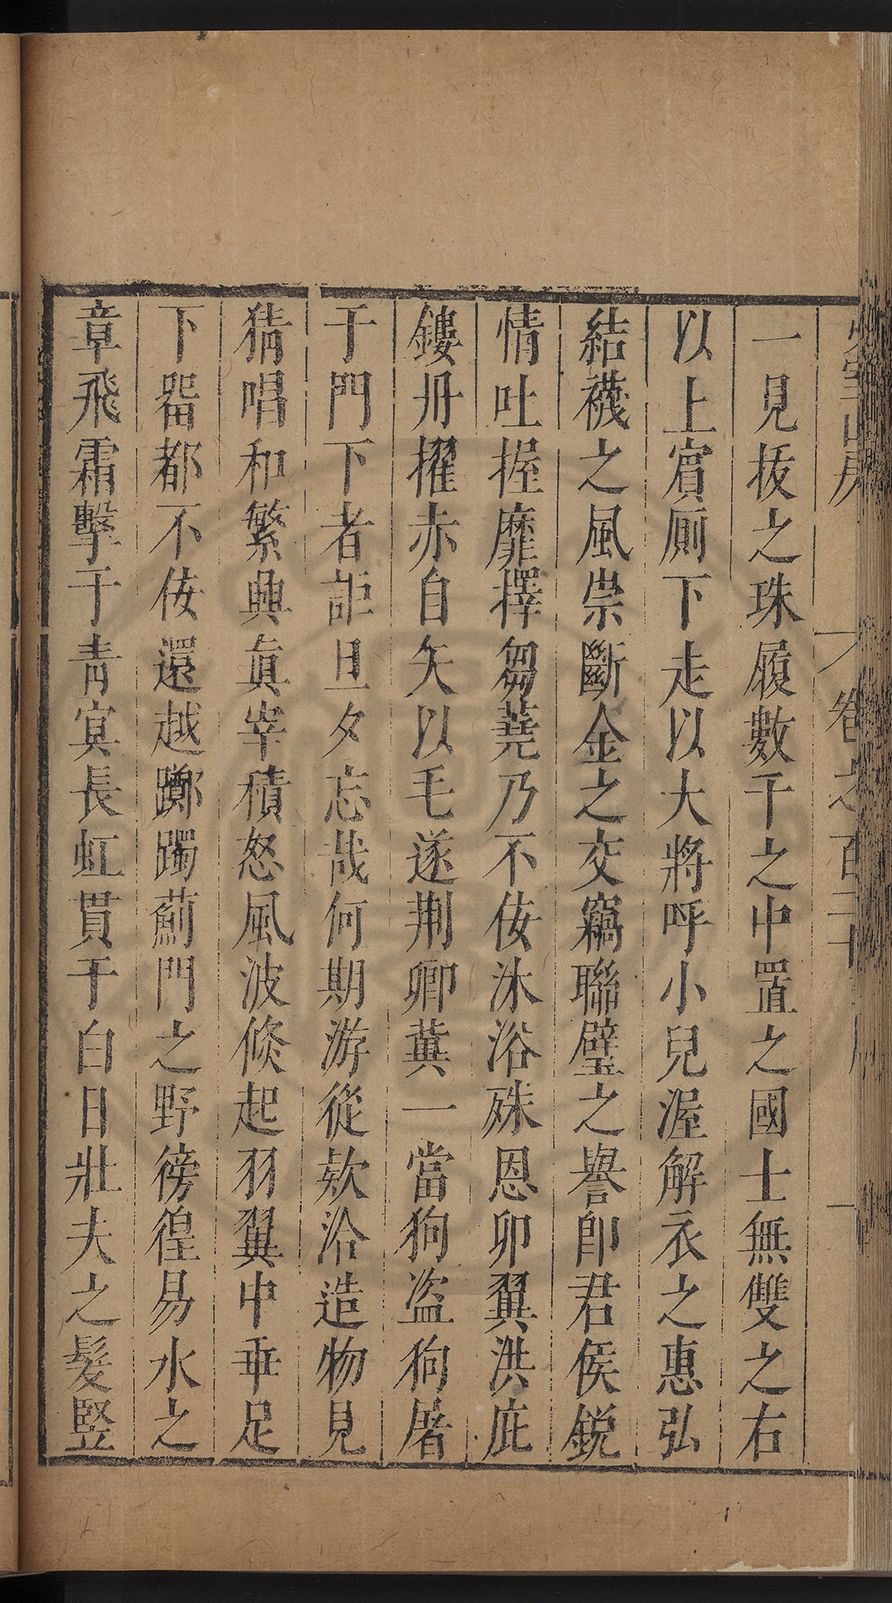 少室山房 卷之百二十 一
一見拔之珠履數千之中置之國士無雙之右
以上賓厠下走以大將呼小兒渥解衣之惠弘
結襪之風崇斷金之交竊聯璧之譽卽君侯鋭
情吐握靡擇芻蕘乃不佞沐浴殊恩卵翼洪庇
鏤丹擢赤自矢以毛遂荆卿冀一當狗盜狗屠
于門下者詎旦夕忘哉何期游從欵洽造物見
猜唱和繁興眞宰積怒風波倐起羽翼中垂足
下畱都不佞還越躑躅薊門之野徬徨易水之
章飛霜擊于靑㝠長虹貫于白日壯夫之髮竪